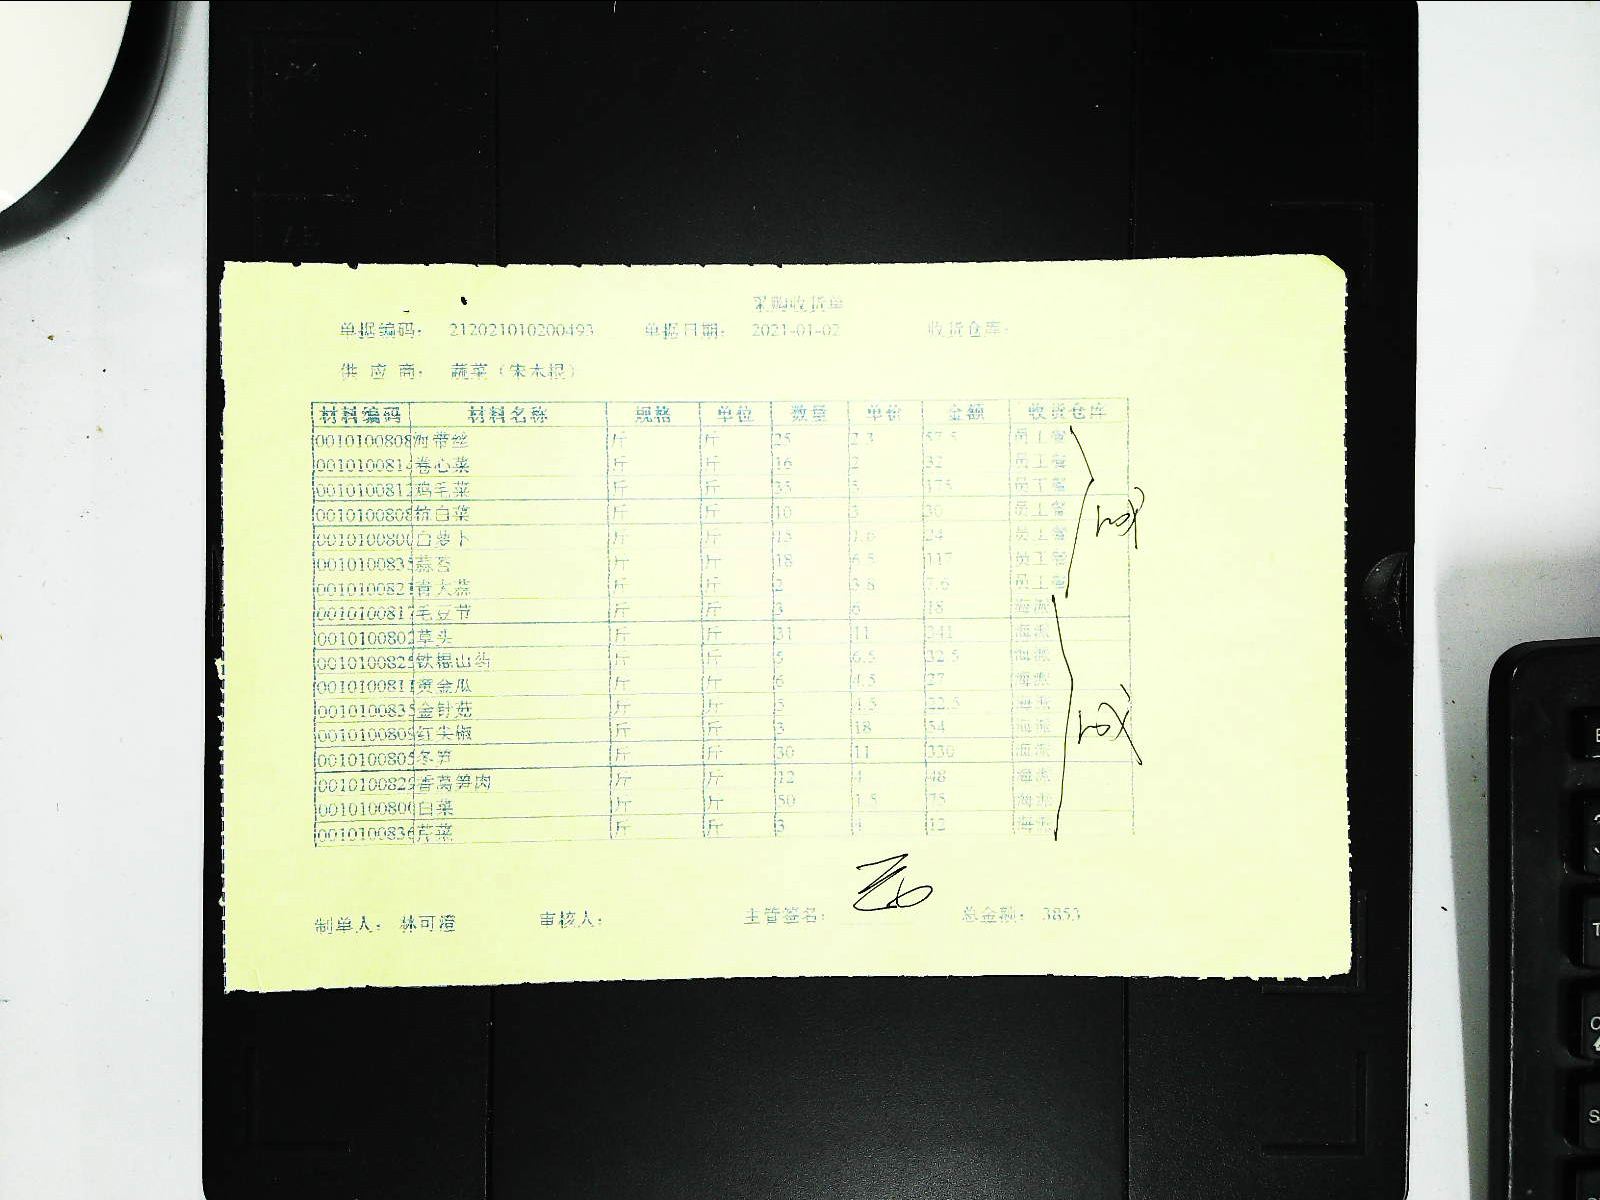 采购收货单
单据编码： 212021010200493 单据日期： 2021-01-02 收货仓库：
供 应 商： 蔬菜（宋木根）
材料编码 材料名称 规格 单位 数量 单价 金额 收货仓库
0010100808 海带丝 斤 斤 25 2.3 57.5 员工餐
001010081 卷心菜 斤 斤 16 2 32 员工餐
0010100812 鸡毛菜 斤 斤 35 5 175 员工餐
0010100808 杭白菜 斤 斤 10 3 30 员工餐
0010100800 白萝卜 斤 斤 15 1.6 24 员工餐
0010100835 蒜苔 斤 斤 18 6.5 117 员工餐
0010100821 青大蒜 斤 斤 2 3.8 7.6 员工餐
0010100817 毛豆节 斤 斤 3 6 18 海派
0010100802 草头 斤 斤 31 11 341 海派
0010100825 铁棍山药 斤 斤 5 6.5 32.5 海派
0010100811 黄金瓜 斤 斤 6 4.5 27 海派
0010100835 金针菇 斤 斤 5 4.5 22.5 海派
0010100809 红尖椒 斤 斤 3 18 54 海派
0010100805 冬笋 斤 斤 30 11 330 海派
0010100829 香莴笋肉 斤 斤 12 4 48 海派
0010100800 白菜 斤 斤 50 1.5 75 海派
0010100836 芹菜 斤 斤 3 4 12 海派
制单人： 林可澄 审核人： 主管签名： 总金额： 3853